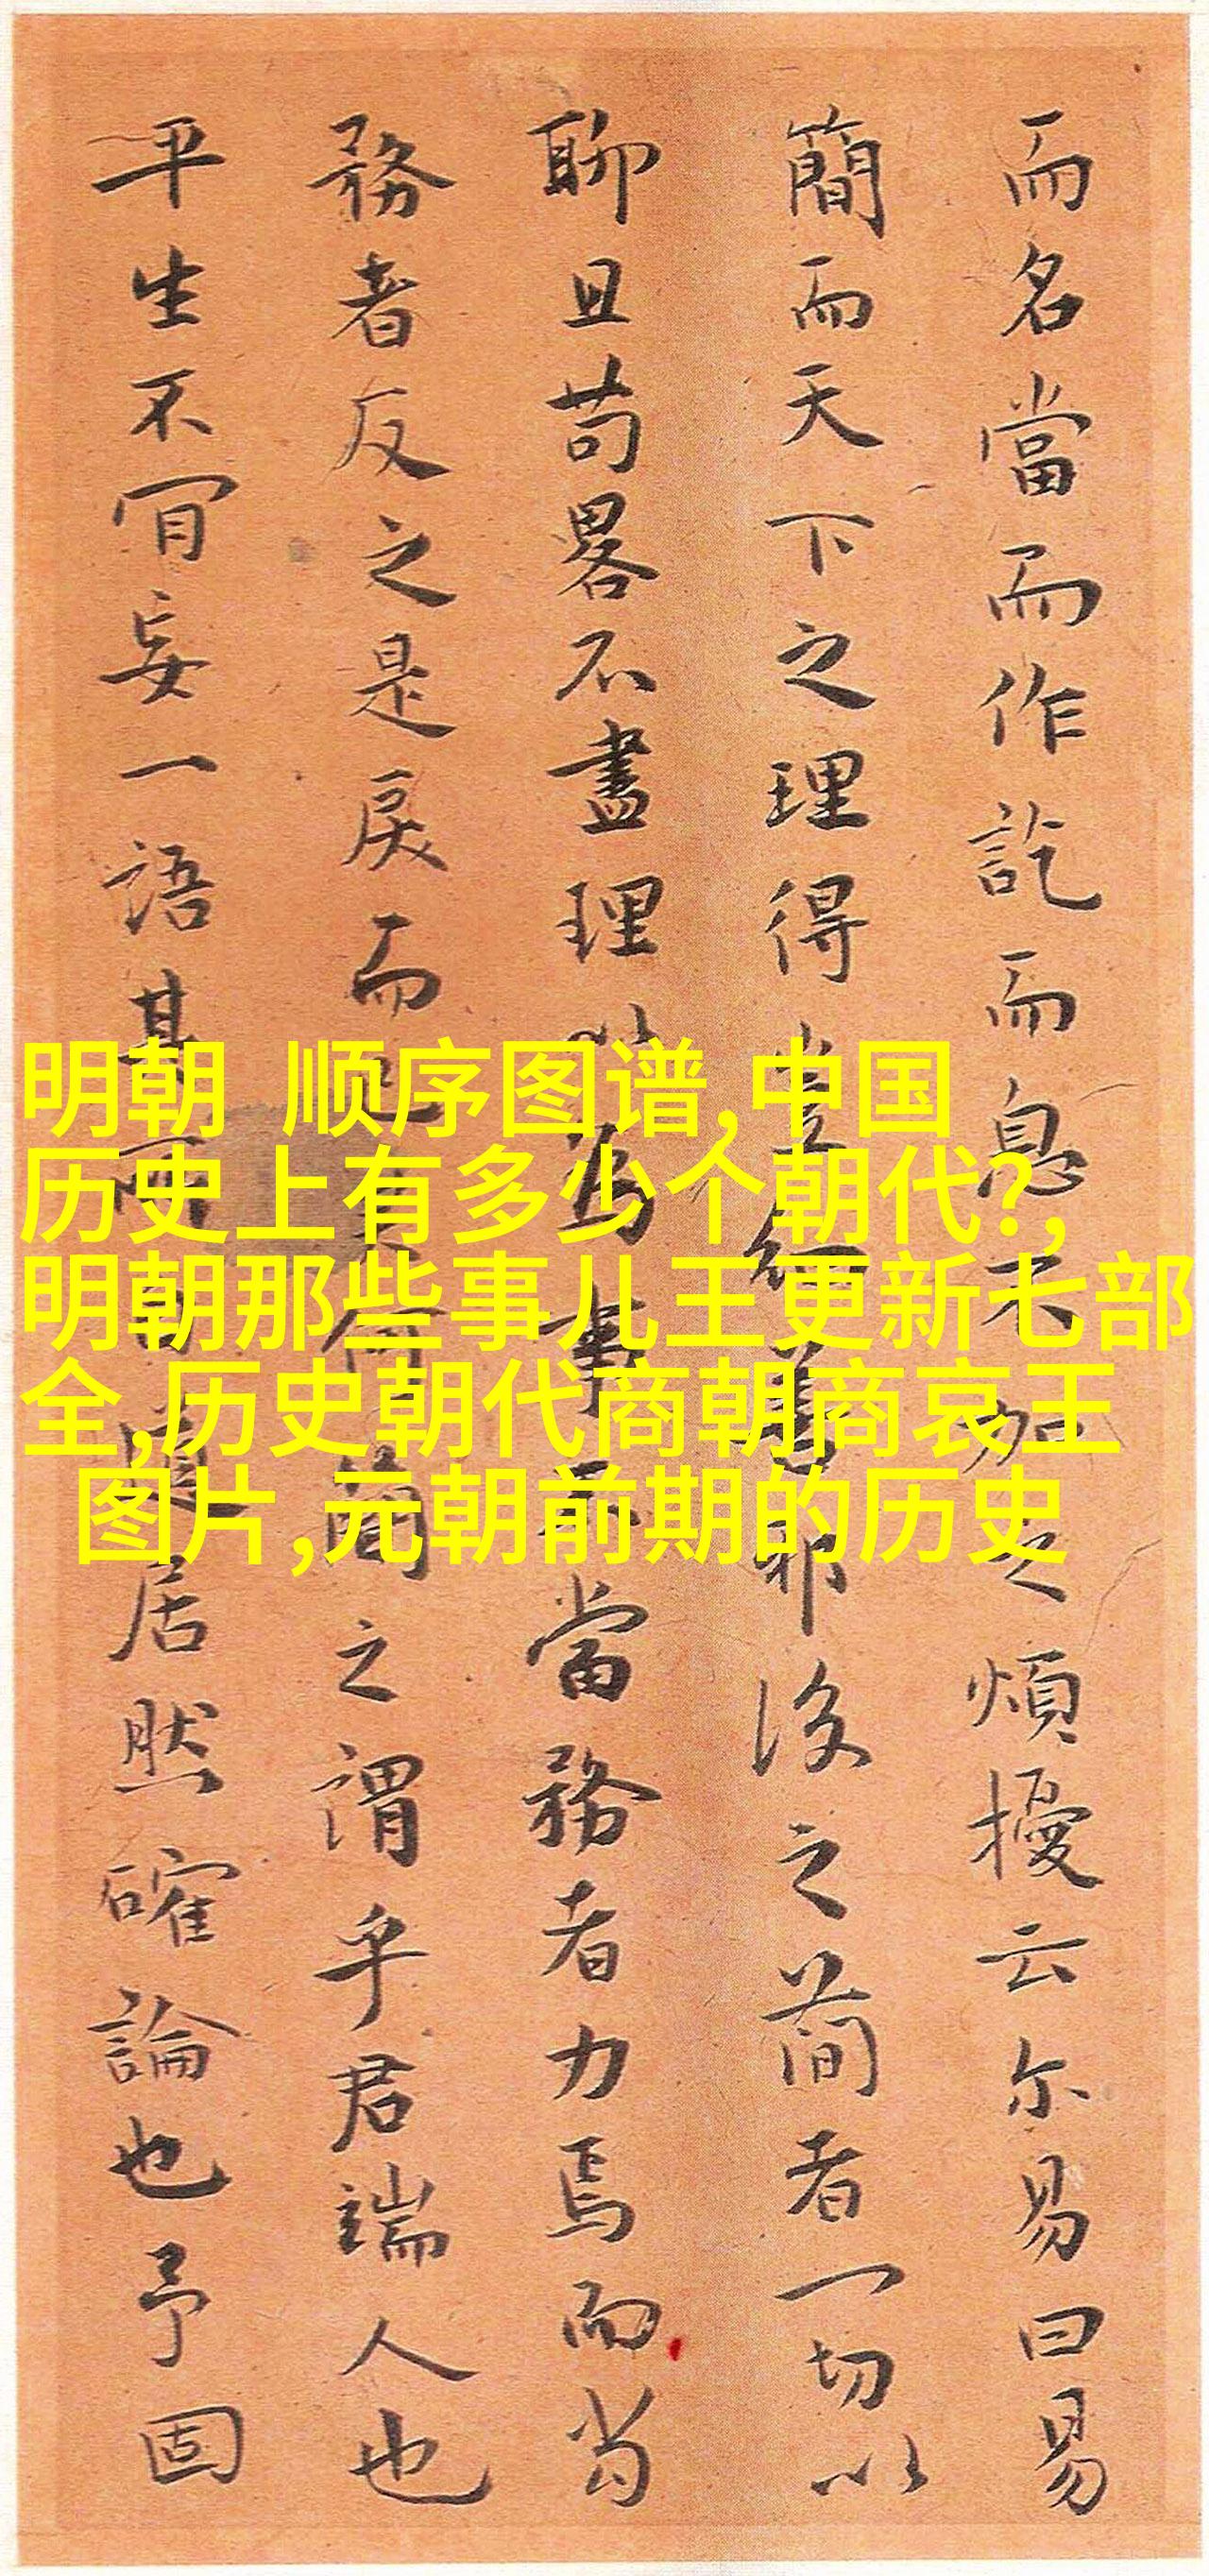 而名當而作訖而息不加之煩擾云尔易曰易
簡而天下之理得豈細耶後之簡者一切以
聊且苟畧不盡理以為事不當務者力焉而當
務者反之是戾而已矣何簡之謂乎君端人也
平生不肎妄一語其所自道居然確論也予固
明朝 顺序图谱,中国
历史上有多少个朝代?,
明朝那些事儿王更新七部
全,历史朝代商朝商哀王
图片,元朝前期的历史